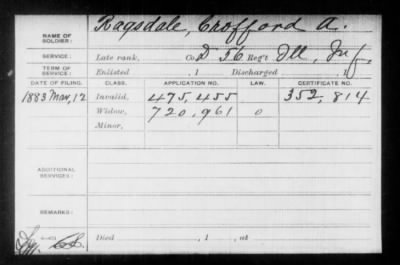 NAME OF SOLDIER: Ragsdale, Crofford A.
SERVICE: Late rank, Co. D 56 Reg't Ill. Inf.
TERM OF SERVICE: Enlisted , 1 Discharged , 1
DATE OF FILING. CLASS. APPLICATION NO. LAW. CERTIFICATE NO.
1883 Mar, 12 Invalid, 475,455 352,814
Widow, 720,961 0
Minor,
ADDITIONAL SERVICES:
REMARKS:
Died , 1 , at